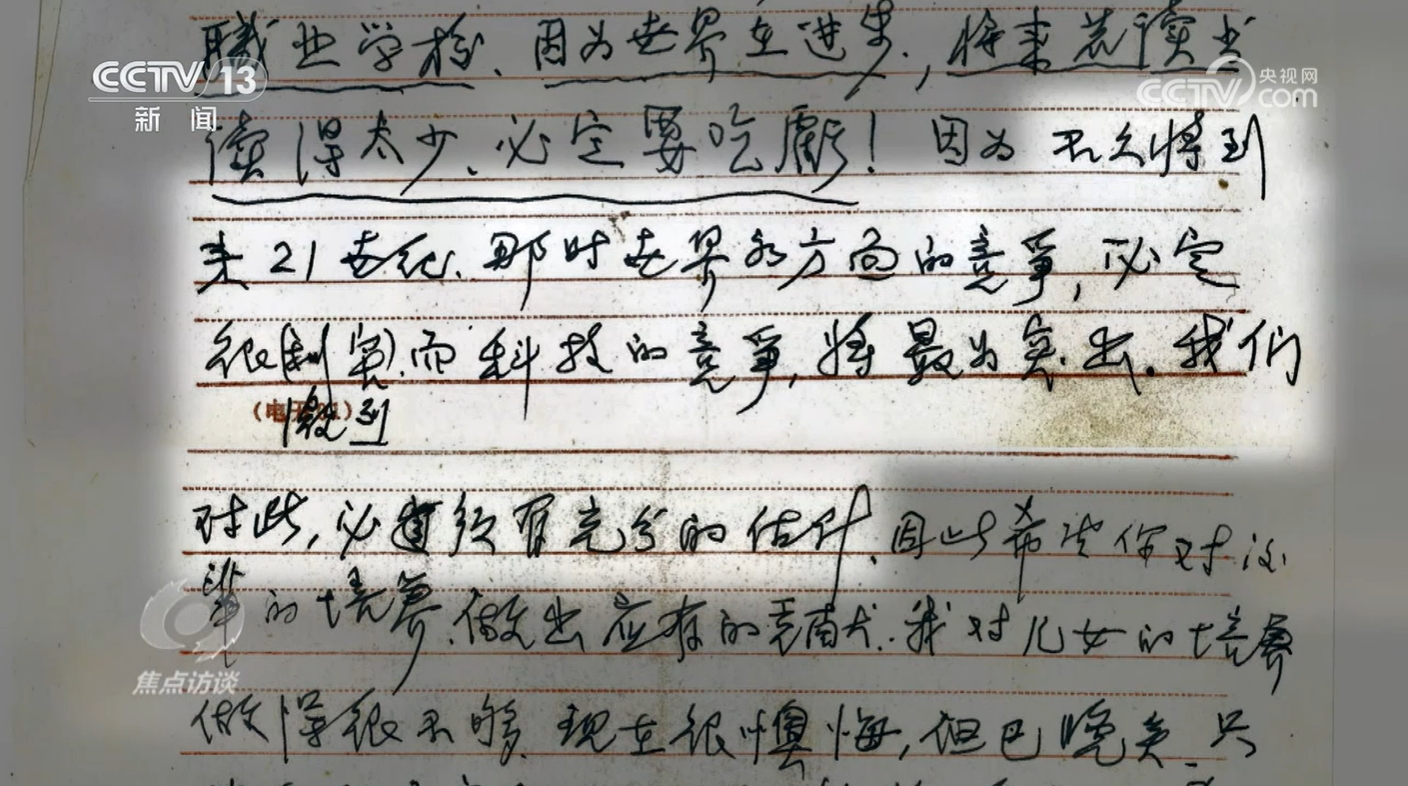 職业学校、因为世界在进步,将来若读书
CCTV 13
新闻
央视网
CCTV.com
读得太少、必定要吃虧!因为不久将到
来21世纪、那时世界各方面的竞爭,必定
很(剧 而科技的竞爭,将最为突出。我们
(电
激烈
对此,必须有充分的估计、因此希望你对后
辈的培养、做出应有的贡献。我对儿女的培养
焦点访谈
做得很不够、现在很懊悔,但已晚矣、只